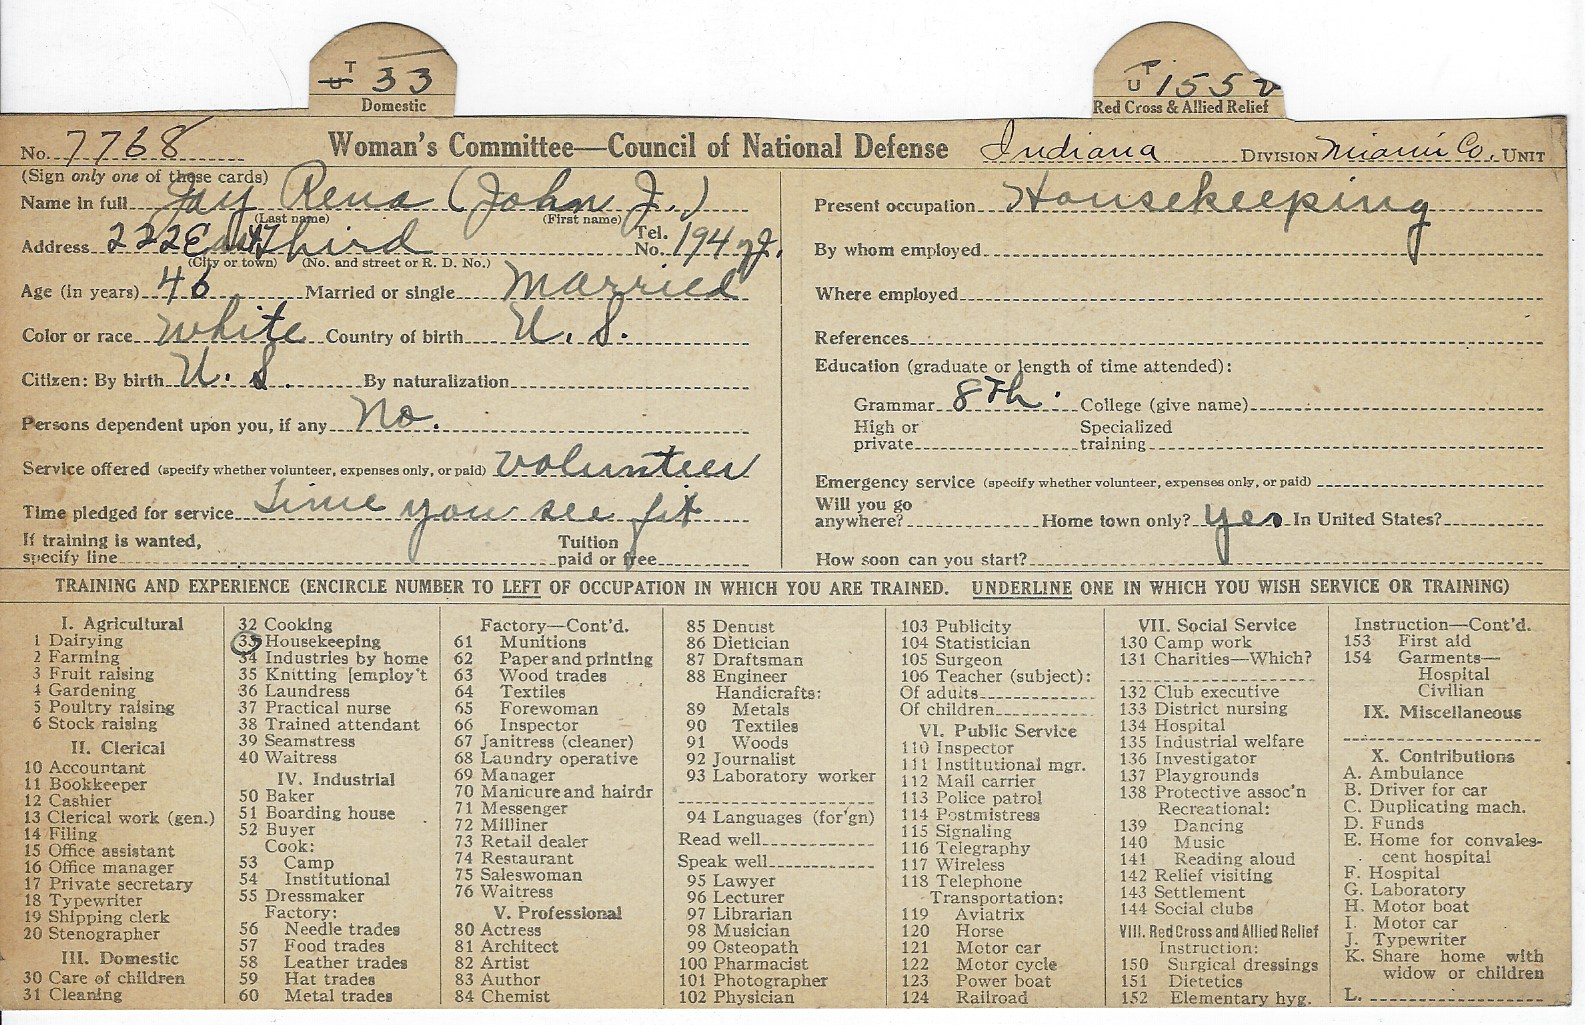 T U 33
Domestic
T U 155 v
Red Cross & Allied Relief
No. 7768 Woman's Committee—Council of National Defense Indiana DIVISION Miami Co. UNIT
(Sign only one of these cards)
Name in full Jay Rena (John J.)
(Last name) (First name)
Address 222 East Third Tel. No. 194
(City or town) (No. and street or R. D. No.)
Age (in years) 46 Married or single Married
Color or race White Country of birth U. S.
Citizen: By birth U. S. By naturalization
Persons dependent upon you, if any No.
Service offered (specify whether volunteer, expenses only, or paid) Volunteer
Time pledged for service Time you see fit
If training is wanted, specify line Tuition paid or free
Present occupation Housekeeping
By whom employed
Where employed
References
Education (graduate or length of time attended):
Grammar 8th. College (give name)
High or private Specialized training
Emergency service (specify whether volunteer, expenses only, or paid)
Will you go anywhere? Home town only? Yes In United States?
How soon can you start?
TRAINING AND EXPERIENCE (ENCIRCLE NUMBER TO LEFT OF OCCUPATION IN WHICH YOU ARE TRAINED. UNDERLINE ONE IN WHICH YOU WISH SERVICE OR TRAINING)
I. Agricultural
1 Dairying
2 Farming
3 Fruit raising
4 Gardening
5 Poultry raising
6 Stock raising
II. Clerical
10 Accountant
11 Bookkeeper
12 Cashier
13 Clerical work (gen.)
14 Filing
15 Office assistant
16 Office manager
17 Private secretary
18 Typewriter
19 Shipping clerk
20 Stenographer
III. Domestic
30 Care of children
31 Cleaning
32 Cooking
33 Housekeeping
34 Industries by home
35 Knitting [employ't
36 Laundress
37 Practical nurse
38 Trained attendant
39 Seamstress
40 Waitress
IV. Industrial
50 Baker
51 Boarding house
52 Buyer
Cook:
53 Camp
54 Institutional
55 Dressmaker
Factory:
56 Needle trades
57 Food trades
58 Leather trades
59 Hat trades
60 Metal trades
Factory—Cont'd.
61 Munitions
62 Paper and printing
63 Wood trades
64 Textiles
65 Forewoman
66 Inspector
67 Janitress (cleaner)
68 Laundry operative
69 Manager
70 Manicure and hairdr
71 Messenger
72 Milliner
73 Retail dealer
74 Restaurant
75 Saleswoman
76 Waitress
V. Professional
80 Actress
81 Architect
82 Artist
83 Author
84 Chemist
85 Dentist
86 Dietician
87 Draftsman
88 Engineer
Handicrafts:
89 Metals
90 Textiles
91 Woods
92 Journalist
93 Laboratory worker
94 Languages (for'gn)
Read well
Speak well
95 Lawyer
96 Lecturer
97 Librarian
98 Musician
99 Osteopath
100 Pharmacist
101 Photographer
102 Physician
103 Publicity
104 Statistician
105 Surgeon
106 Teacher (subject):
Of adults
Of children
VI. Public Service
110 Inspector
111 Institutional mgr.
112 Mail carrier
113 Police patrol
114 Postmistress
115 Signaling
116 Telegraphy
117 Wireless
118 Telephone
Transportation:
119 Aviatrix
120 Horse
121 Motor car
122 Motor cycle
123 Power boat
124 Railroad
VII. Social Service
130 Camp work
131 Charities—Which?
132 Club executive
133 District nursing
134 Hospital
135 Industrial welfare
136 Investigator
137 Playgrounds
138 Protective assoc'n
Recreational:
139 Dancing
140 Music
141 Reading aloud
142 Relief visiting
143 Settlement
144 Social clubs
VIII. Red Cross and Allied Relief
Instruction:
150 Surgical dressings
151 Dietetics
152 Elementary hyg.
Instruction—Cont'd.
153 First aid
154 Garments—
Hospital
Civilian
IX. Miscellaneous
X. Contributions
A. Ambulance
B. Driver for car
C. Duplicating mach.
D. Funds
E. Home for convales-
cent hospital
F. Hospital
G. Laboratory
H. Motor boat
I. Motor car
J. Typewriter
K. Share home with
widow or children
L.